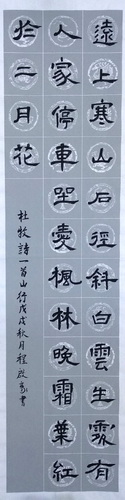 遠上寒山石徑斜白雲生處有
人家停車坐愛楓林晚霜葉紅
於二月花
杜牧詩一首山行戊戌秋月程啟亮書